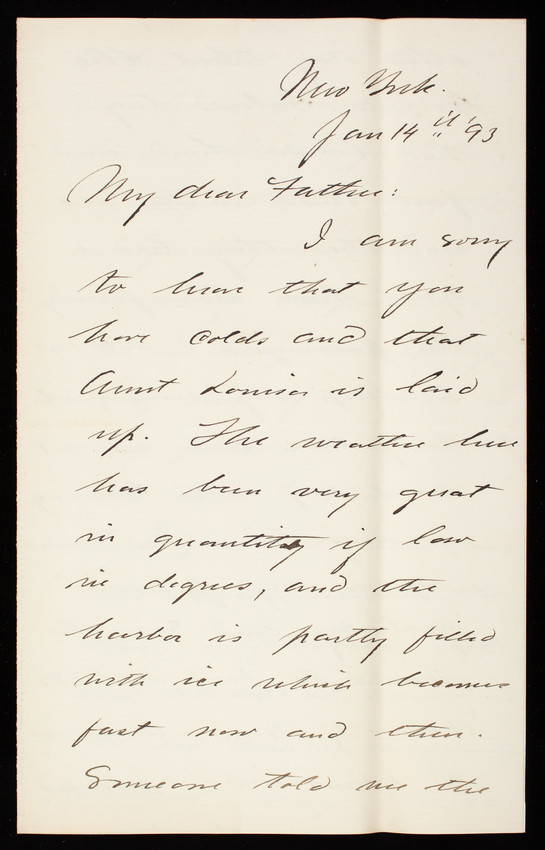 New York.
Jan 14th '93
My dear Father:
I am sorry
to hear that you
have colds and that
Aunt Louisa is laid
up. The weather here
has been very great
in quantity if low
in degrees, and the
harbor is partly filled
with ice which becomes
fast now and then.
Someone told me the